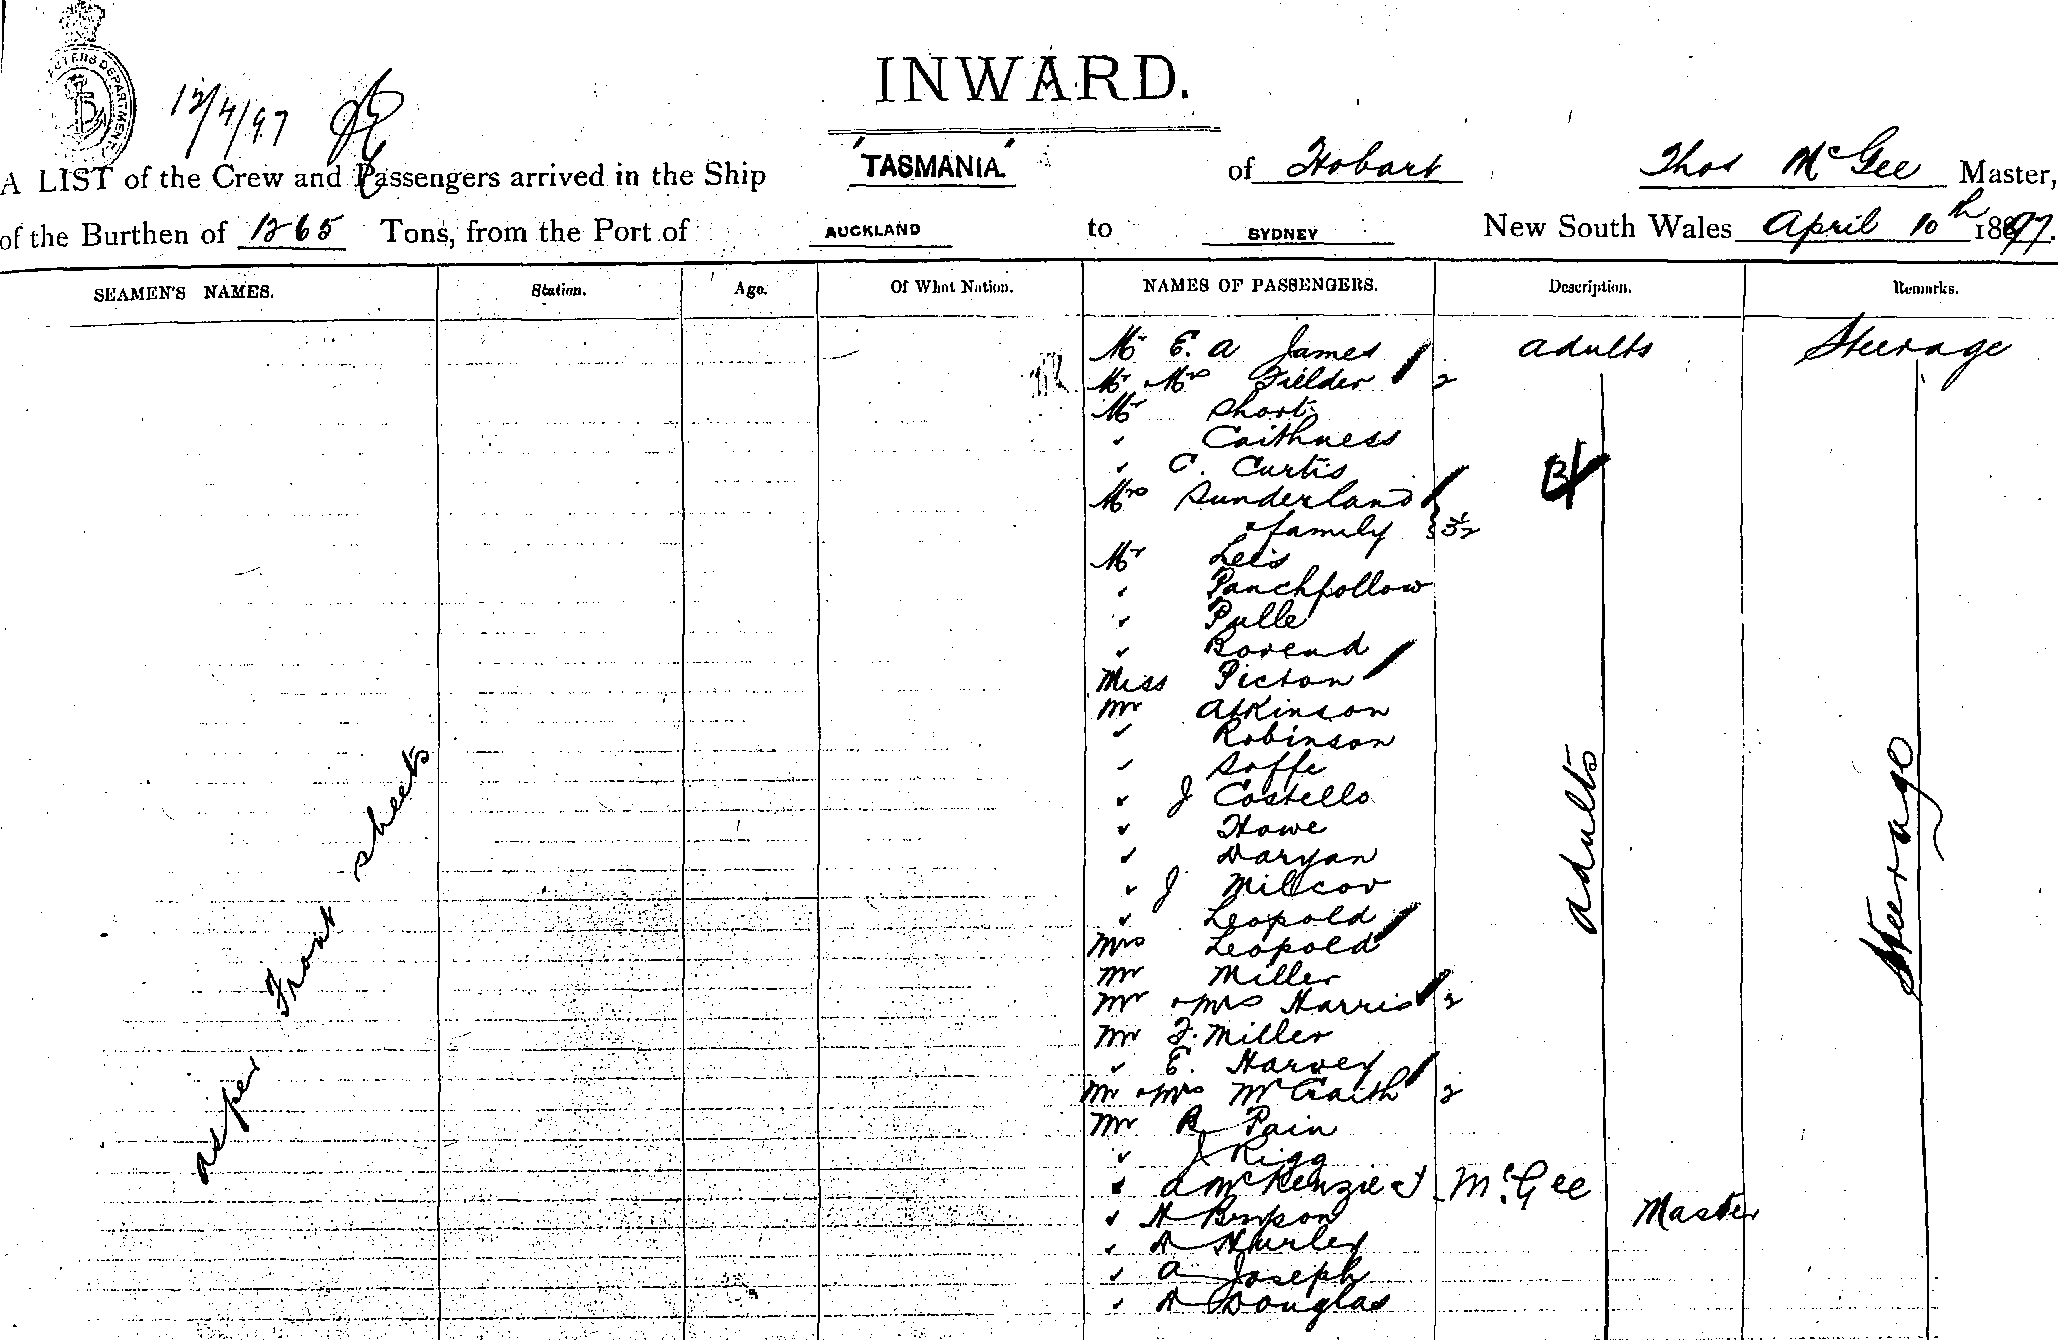 INWARD.
12/4/97
A LIST of the Crew and Passengers arrived in the Ship 'TASMANIA' of Hobart Thos McGee Master,
of the Burthen of 1265 Tons, from the Port of AUCKLAND to SYDNEY New South Wales April 10th 1897.
SEAMEN'S NAMES. Station. Age. Of What Nation. NAMES OF PASSENGERS. Description. Remarks.
Mr E. A James adults Steerage
Mr & Mrs Fielder 2
Mr Short
" Caithness
" C. Curtis
Mrs Sunderland
& family } 3½
Mr Leis
" Panchpollow
" Pulle
" Bovend
Miss Picton
Mr Atkinson
" Robinson
" Soffe
" J Costello
" Howe
" Daryan
" J Milcov
" Leopold
Mrs Leopold
Mr Miller
Mr & Mrs Harris 2
Mr F. Miller
" E. Harvey
Mr & Mrs McGraith 2
Mr R Pain
" J Rigg
" A McKenzie
" H Benson
" D Hurley
" A Joseph
" D Douglas
as per Front sheets
adults
Steerage
T McGee
Master